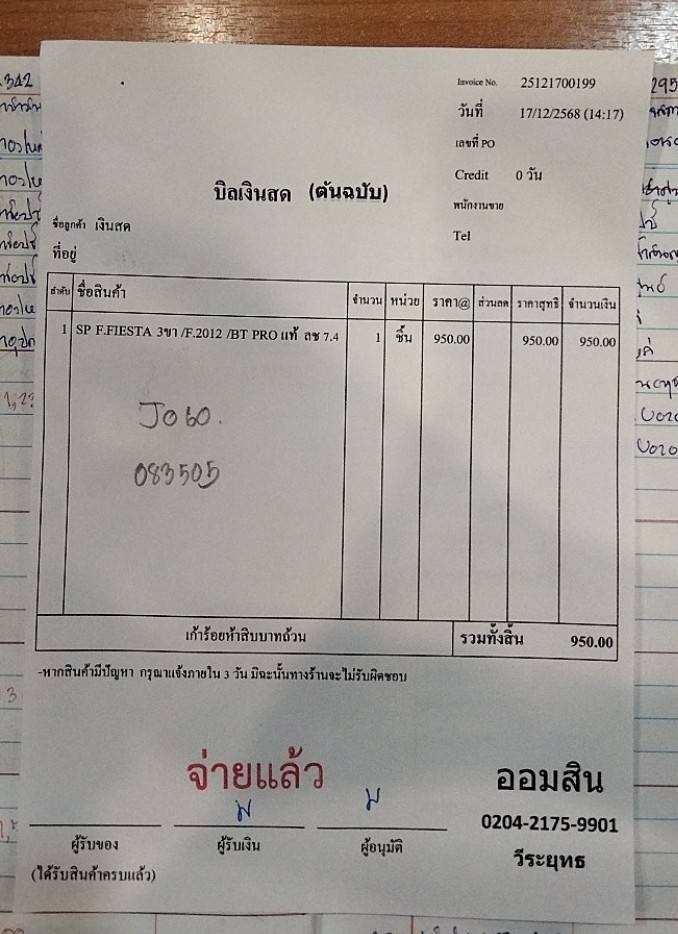 Invoice No. 25121700199
วันที่ 17/12/2568 (14:17)
เลขที่ PO
Credit 0 วัน
พนักงานขาย
Tel
บิลเงินสด (ต้นฉบับ)
ชื่อลูกค้า เงินสด
ที่อยู่
ลำดับ ชื่อสินค้า จำนวน หน่วย ราคา@ ส่วนลด ราคาสุทธิ จำนวนเงิน
1 SP F.FIESTA 3ขา /F.2012 /BT PRO แท้ ลช 7.4 1 ชิ้น 950.00 950.00 950.00
J060.
083505
เก้าร้อยห้าสิบบาทถ้วน รวมทั้งสิ้น 950.00
-หากสินค้ามีปัญหา กรุณาแจ้งภายใน 3 วัน มิฉะนั้นทางร้านจะไม่รับผิดชอบ
จ่ายแล้ว
ออมสิน
0204-2175-9901
วีระยุทธ
ผู้รับของ ผู้รับเงิน ผู้อนุมัติ
(ได้รับสินค้าครบแล้ว)
342
295